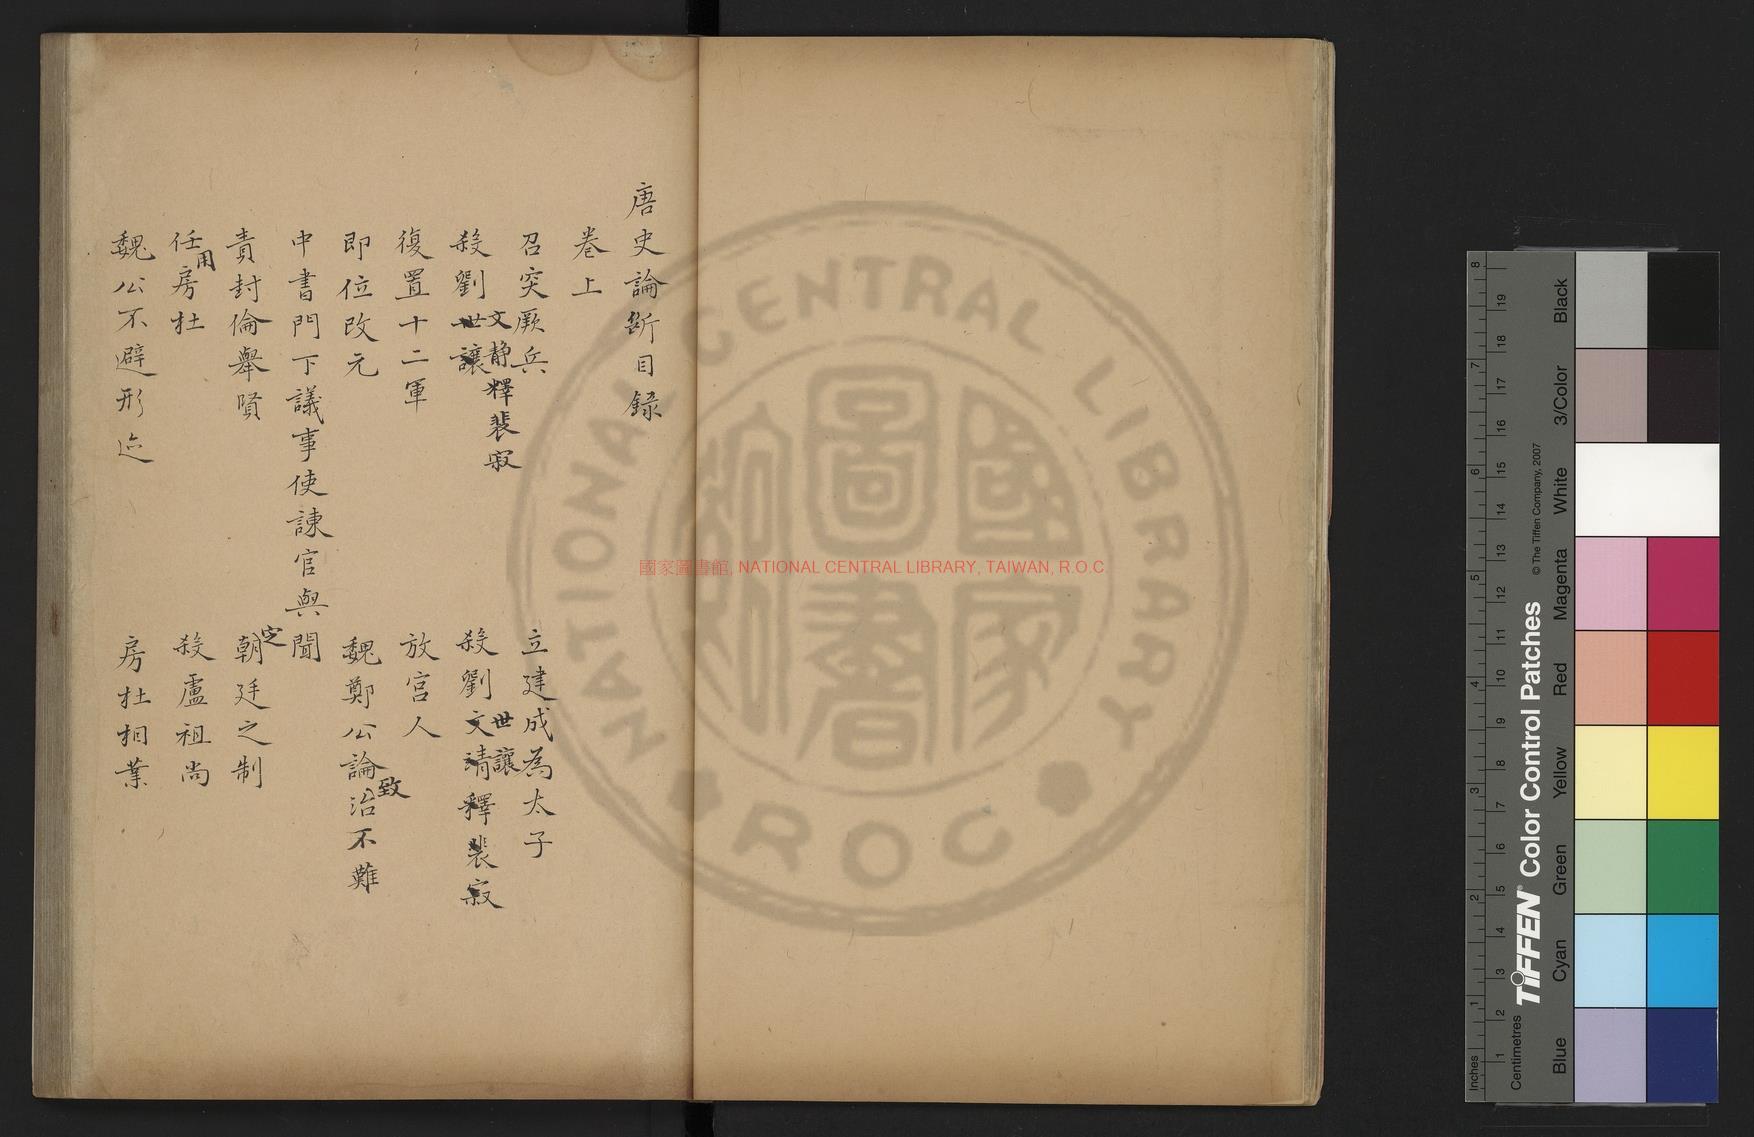 唐史論斷目錄
卷上
召突厥兵
立建成為太子
殺劉世讓
文靜釋裴寂
殺劉文靖釋裴寂
世讓
復置十二軍
放宮人
即位改元
魏鄭公論治不難
致
中書門下議事使諫官與聞
責封倫舉賢
定
朝廷之制
任房杜
用
殺盧祖尚
魏公不避形迹
房杜相業
國家圖書館, NATIONAL CENTRAL LIBRARY, TAIWAN, R.O.C
NATIONAL CENTRAL LIBRARY
ROC
國家圖書館
Inches
Centimetres
TIFFEN® Color Control Patches
© The Tiffen Company, 2007
Blue
Cyan
Green
Yellow
Red
Magenta
White
3/Color
Black